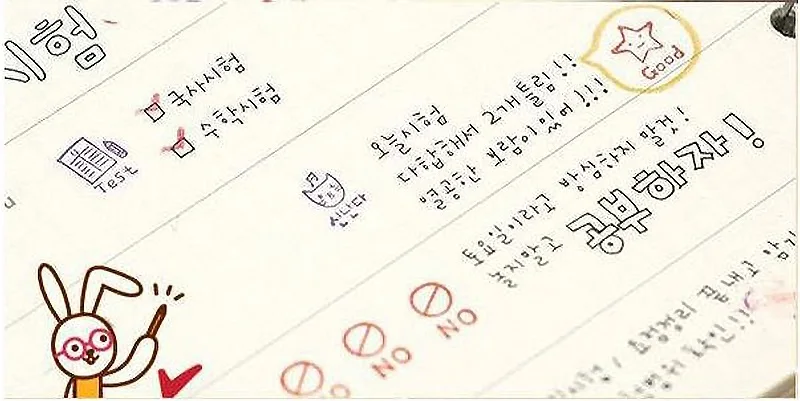 시험
국사시험
수학시험
Test
신난다
오늘시험
다합해서 2개틀림!!
열공한 보람이 있어!!!
Good
토요일이라고 방심하지 말것!
놀지말고 공부하자!
NO
NO
NO
끝내고